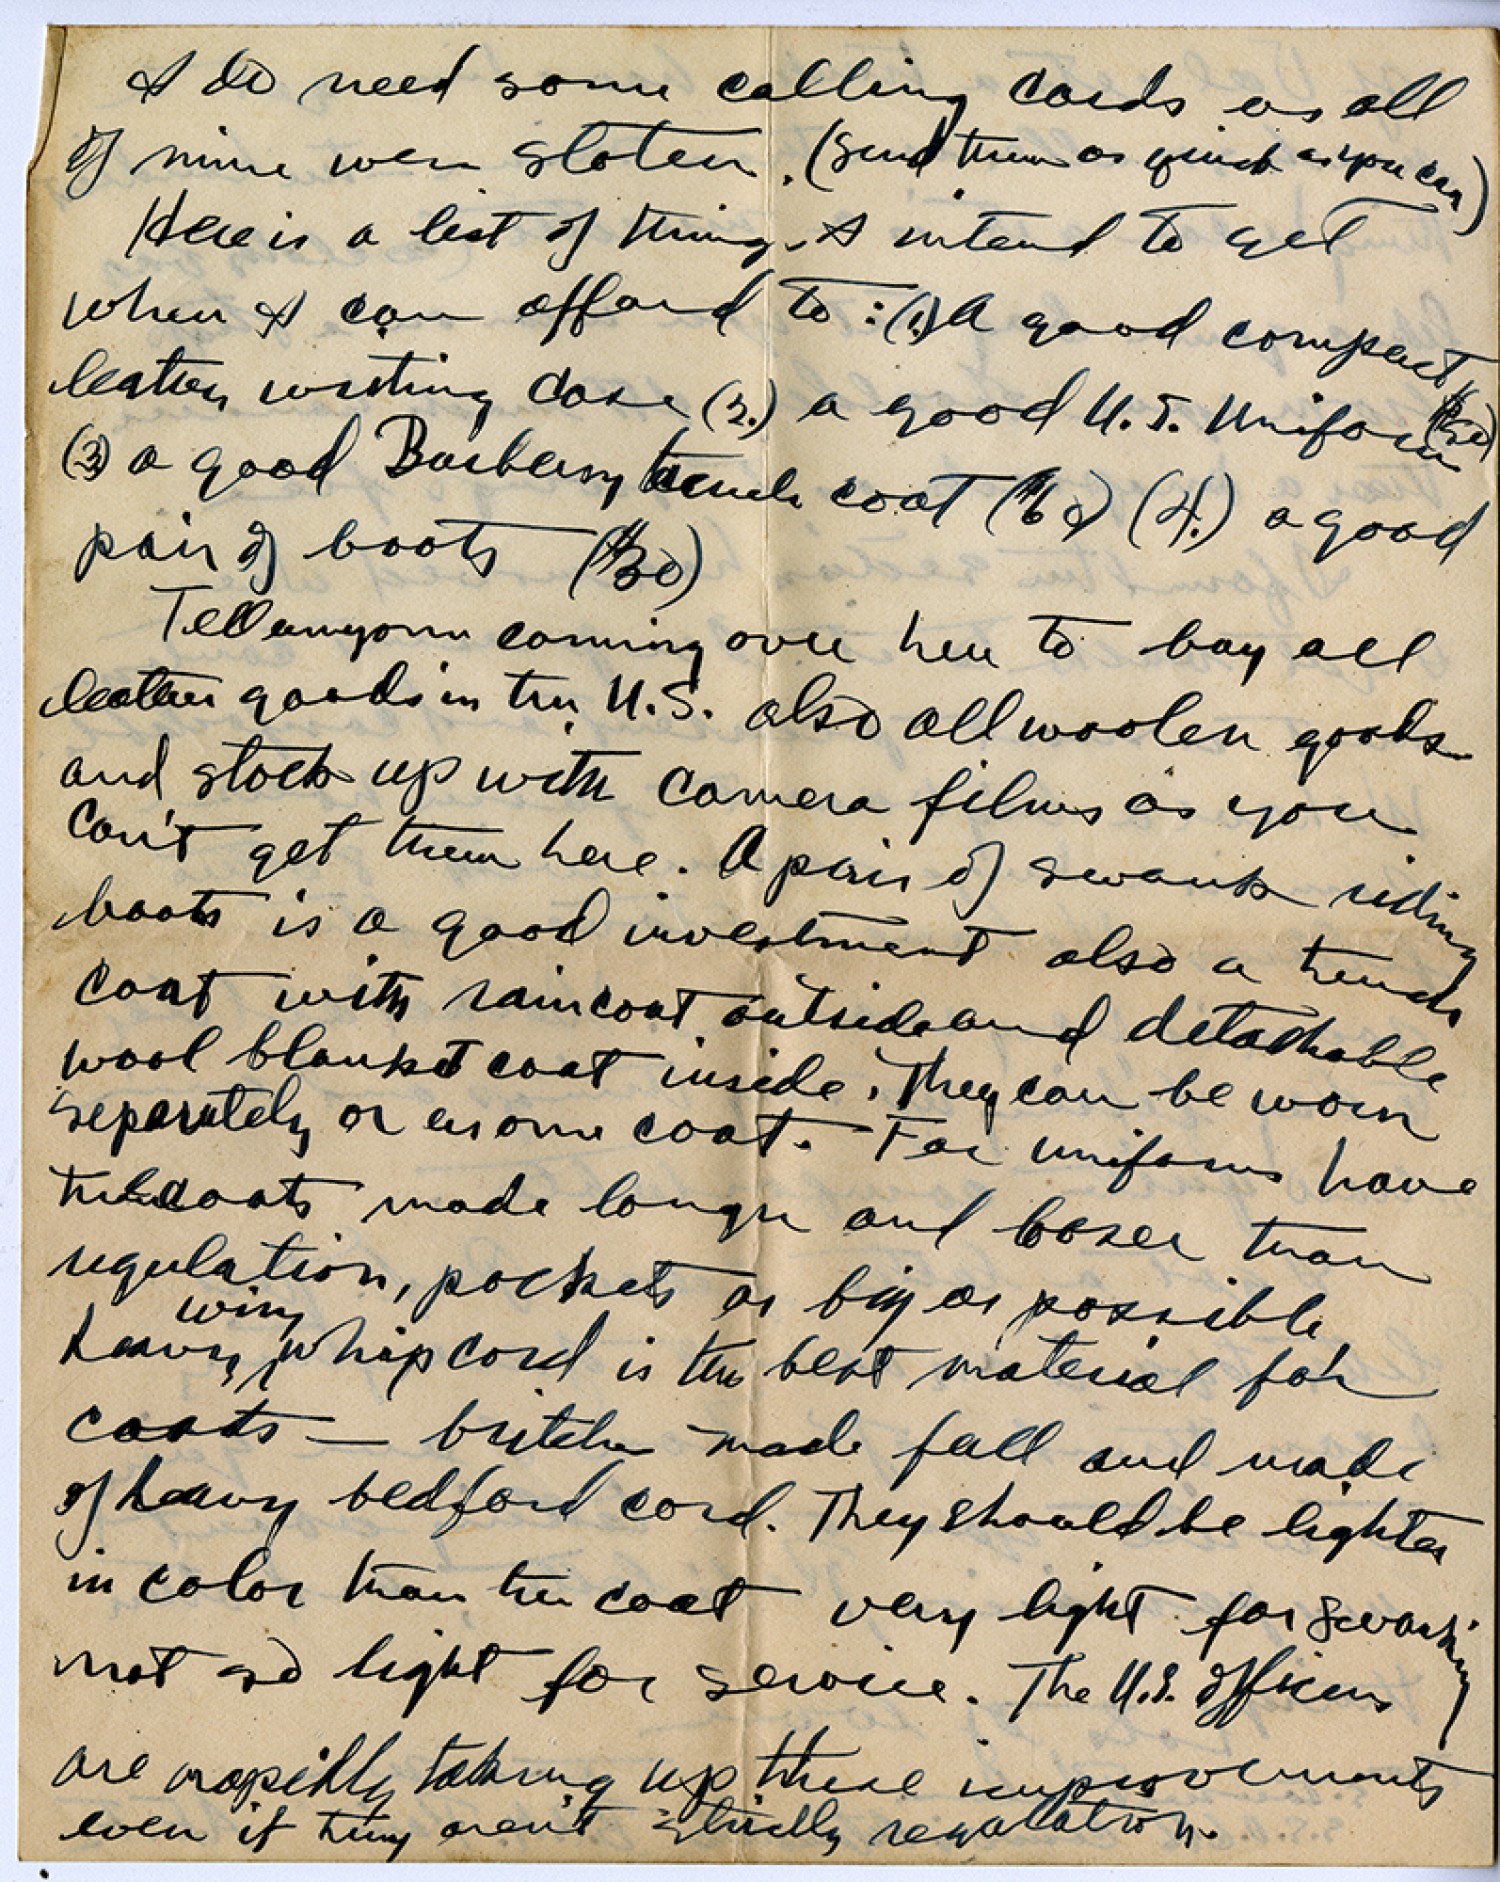 I do need some calling cards as all
of mine were stolen. (Send them as quick as you can)
Here is a list of things I intend to get
when I can afford to: (1.) A good compact
leather writing case (2.) a good U.S. Uniform
(3) a good Burberry trench coat ($60) (4.) a good
pair of boots ($30)
Tell anyone coming over here to buy all
leather goods in the U.S. also all woolen goods
and stock up with camera films as you
can't get them here. A pair of swank riding
boots is a good investment also a trench
coat with raincoat outside and detachable
wool blanket coat inside. They can be worn
separately or as one coat. For uniforms have
the coats made longer and looser than
regulation, pockets as big as possible
wiry
heavy, whipcord is the best material for
coats — britches made full and made
of heavy bedford cord. They should be lighter
in color than the coat very light for swanking
not so light for service. The U.S. officers
are rapidly taking up these improvements
even if they aren't strictly regulation.